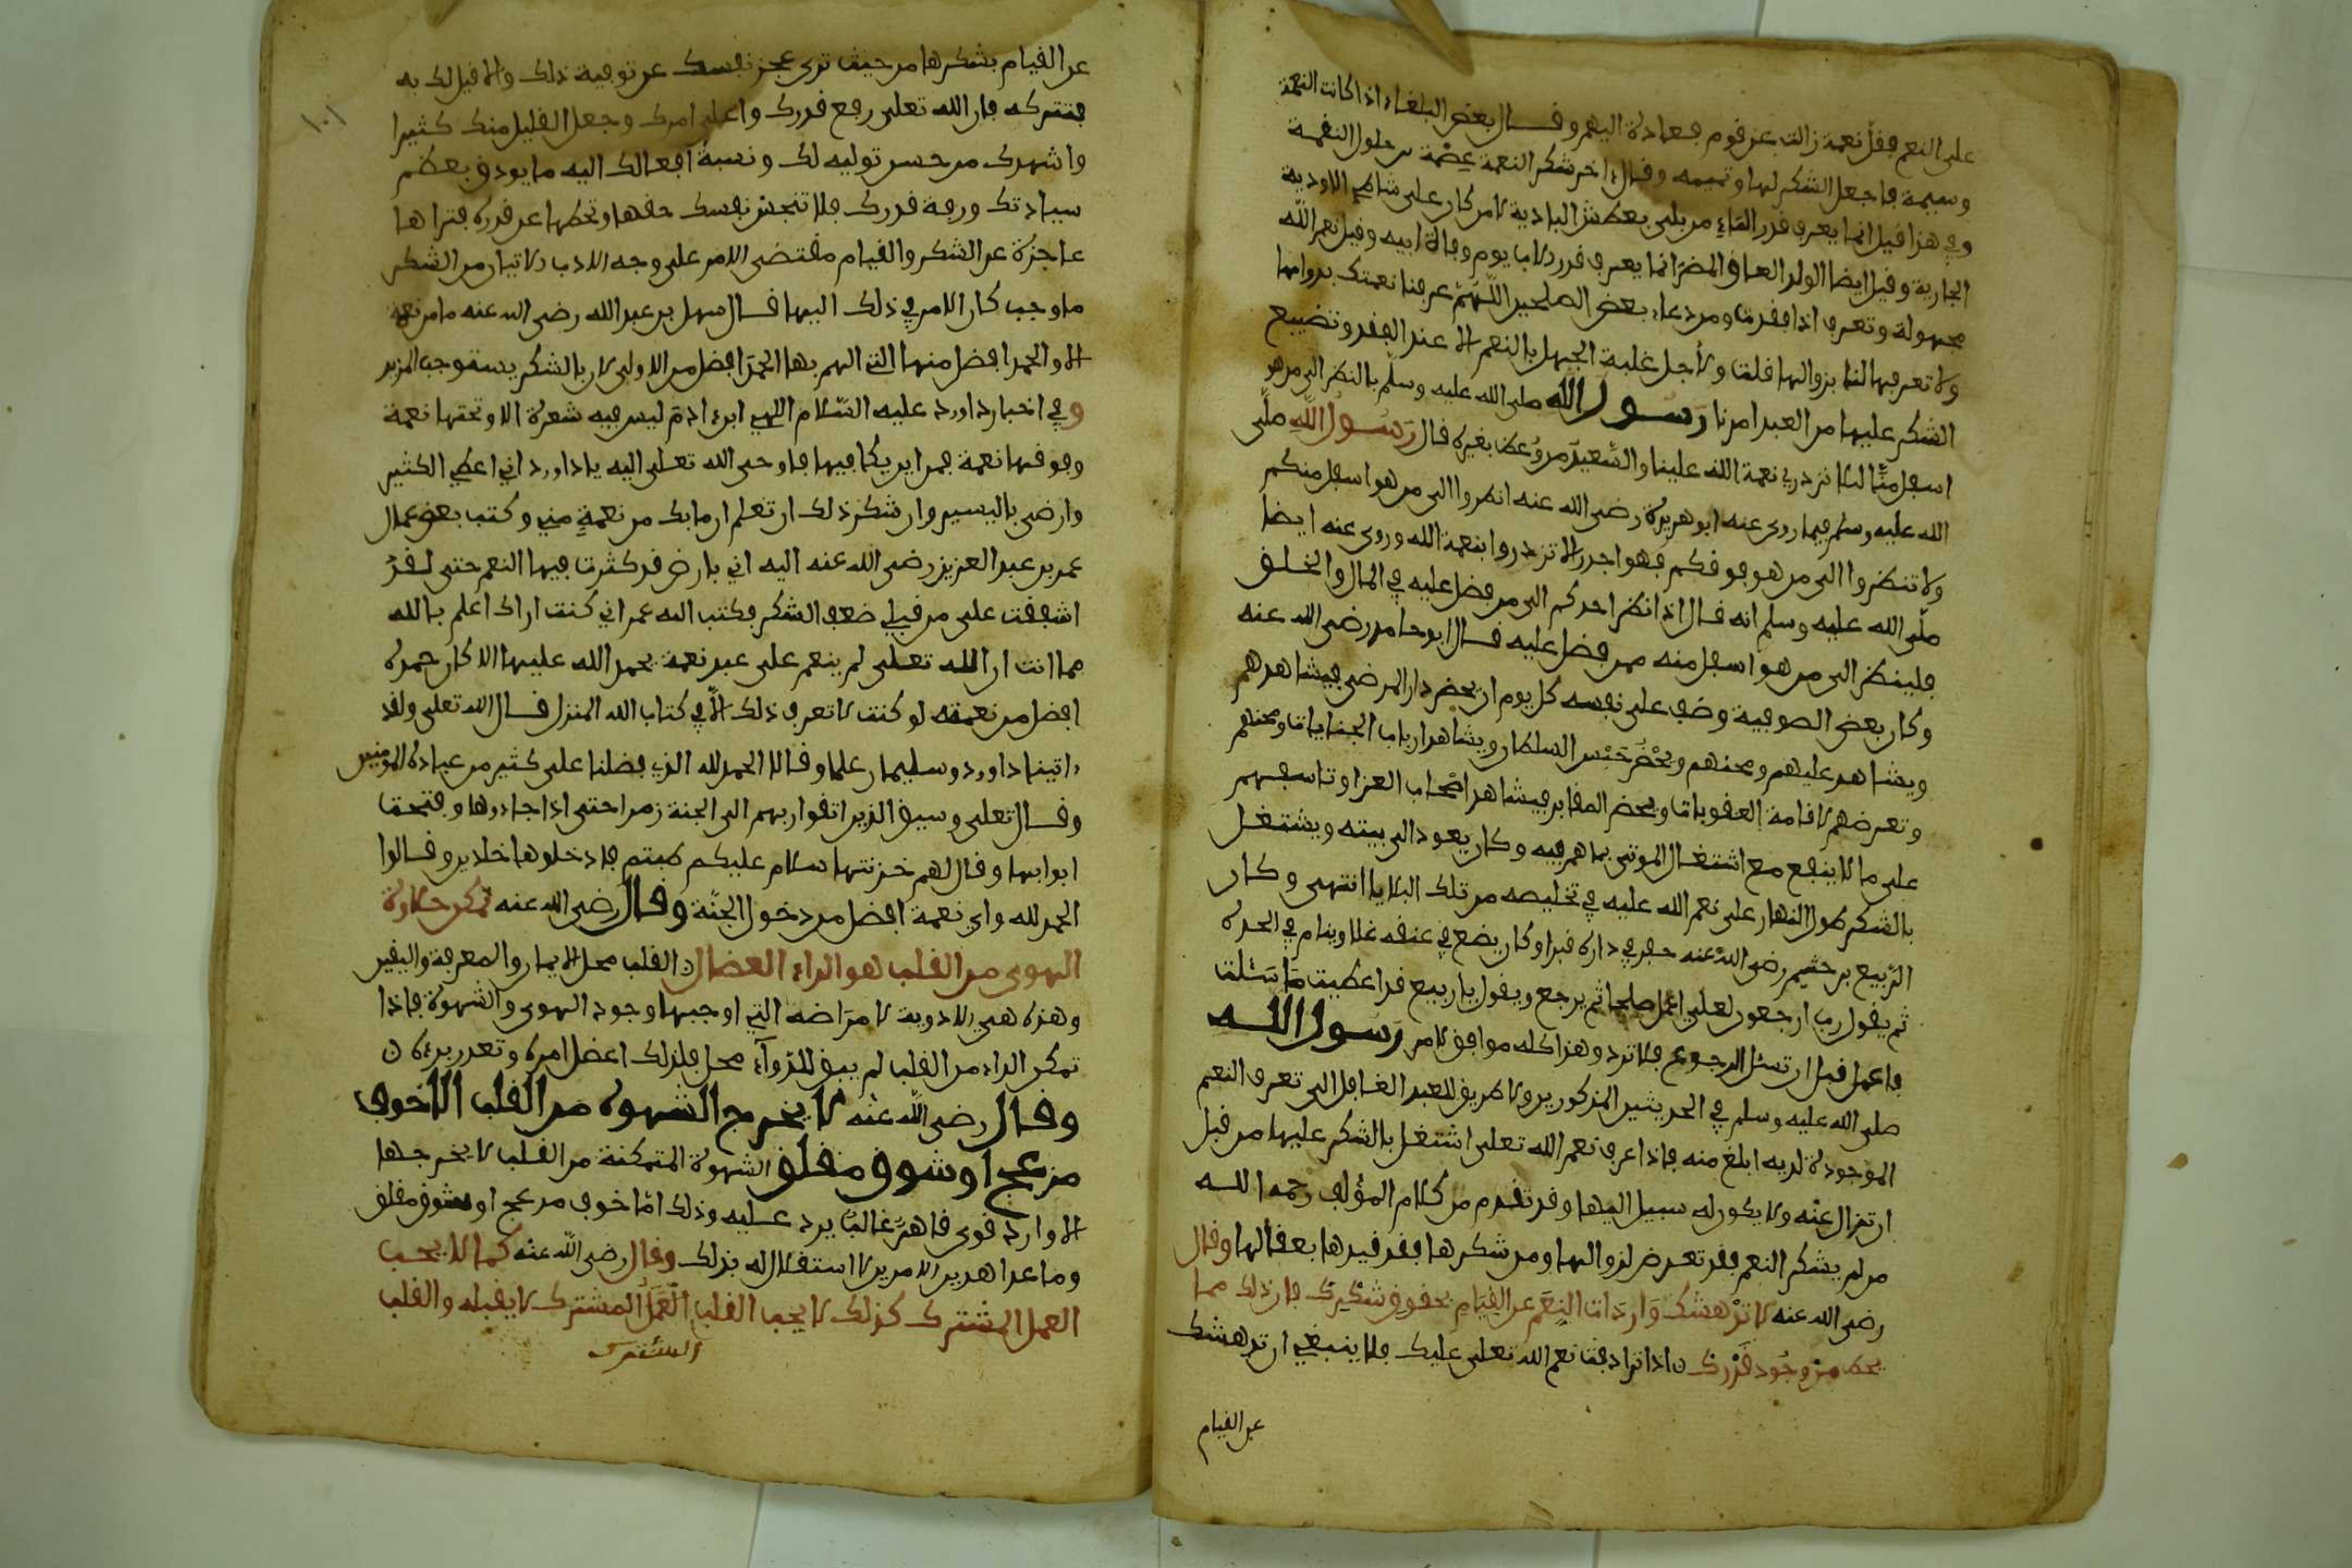 على النعم فقلّ نعمة زالت عن قوم فعادة اليهم وقال بعض البلغاء اذا كانت النعمة
وسيمة فاجعل الشكر لها وتميمه وقال اخر شكر النعمة عصمة من حلول النقمة
وفي هذا قيل انما يعرف قدر الماء من بلي بعطش البادية لا من كان على شاطي الاودية
الجارية وقيل ايضا الولد العاق المضر انما يعرف قدر الاب يوم وفاة ابيه وقيل نعم الله
مجهولة وتعرف اذا فقدت ومن دعاء بعض الصلحين اللهم عرفنا نعمتك بدوامها
ولا تعرفها لنا بزوالها قلت ولاجل غلبة الجهل بالنعم الا عند الفقد وتضييع
الشكر عليها من العبد امرنا رسول الله صلى الله عليه وسلم بالنظر الى من هو
اسفل منّا لئلا نزدري نعمة الله علينا والسّعيد من وُعظ بغيره قال رسول الله صلّى
الله عليه وسلم فيما روى عنه ابو هريرة رضي الله عنه انظروا الى من هو اسفل منكم
ولا تنظروا الى من هو فوقكم فهو اجدر الا تزدروا بنعمة الله وروى عنه ايضا
صلّى الله عليه وسلم انه قال اذا نظر احدكم الى من فضل عليه في المال والخلق
فلينظر الى من هو اسفل منه ممن فضل عليه قال ابو حامد رضي الله عنه
وكان بعض الصوفية وضف على نفسه كل يوم ان يحضر دار المرضى فيشاهدهم
ويشاهد عليهم ومحنهم ويحْضُر حَبْس السلطان ويشاهد ارباب الجنايات ومحنهم
وتعرضهم لاقامة العقوبات ويحضر المقابر فيشاهد اصْحاب العزا وتاسفهم
على ما لا ينفع مع اشتغال الموتى بما هم فيه وكان يعود الى بيته ويشتغل
بالشكر طول النهار على نعم الله عليه في تخليصه من تلك البلايا انتهى وكان
الرّبيع بن خثيم رضي الله عنه حفر في داره قبرا وكان يضع في عنقه غلا وينام في لحده
ثم يقول رب ارجعون لعلي اعمل صلحا ثم يرجع ويقول يا ربيع قد اعطيت مَا سَئلت
فاعمل قبل ان تسئل الرجوع فلا ترد وهذا كله موافق لامر رسول الله
صلى الله عليه وسلم في الحديثين المذكورين ولا طريق للعبد الغافل الى تعرف النعم
الموجودة لديه ابلغ منه فاذا عرف نعم الله تعلى اشتغل بالشكر عليها من قبل
ان تزال عنْه ولا يكون له سبيل اليها وقد تقدم من كلام المؤلف رحمه الله
من لم يشكر النعم فقد تعرض لزوالها ومن شكرها فقد قيدها بعقالها وقال
رضي الله عنه لا تدْهشك وَارِدَات النِعَم عن القِيَامِ بحقوق شكْرِك فان ذلك مما
يحط من وجُود قَدْرك ن اذا ترادفت نعم الله تعلى عليك فلا ينبغي ان تدهشك
عن القيام
١٠١
عن القيام بشكرها من حيث ترى عجز نفسك عن توفية ذلك والا قبل لك به
فتتركه فان الله تعلى رفع قدرك واعلى امرك وجعل القليل منك كثيرا
واشهدك من حسن توليه لك ونسبة افعالك اليه ما يوذن بعظم
سيادتك ورفعة قدرك فلا تبخس نفسك حقها وتحطها عن قدره فتراها
عاجزة عن الشكر والقيام مقتضى الامر على وجه الادب والاتيان من الشكر
ما وجب كان الامر في ذلك اليها قال سهل بن عبد الله رضي الله عنه ما من نعمة
الا والحمد افضل منها التي الهم بها الحمد افضل من الاولى لان بالشكر يستوجب المزيد
وفي اخبار داوود عليه السّلام الهي ابن ادم ليس فيه شعرة الا وتحتها نعمة
وفوقها نعمة فمن اين يكافيها فاوحى الله تعلى اليه يا داوود اني اعطي الكثير
وارضى باليسير وان شكر ذلك ان تعلم ان ما بك من نعمةٍ مني وكتب بعض عمال
عمر بن عبد العزيز رضي الله عنه اليه اني بارض قد كثرت فيها النعم حتى لقد
اشفقت على من قبلي ضعف الشكر فكتب اليه عمر اني كنت اراك اعلم بالله
مما انت ان الله تعلى لم ينعم على عبد نعمة يحمد الله عليها الا كان حمده
افضل من نعمته لو كنت لا تعرف ذلك الا في كتاب الله المنزل قال الله تعلى ولقد
اتينا داوود وسليمان علما وقالا الحمد لله الذي فضلنا على كثير من عباده المومنين
وقال تعلى وسيق الذين اتقوا ربهم الى الجنة زمرا حتى اذا جاءوها وفتحت
ابوابها وقال لهم خزنتها سلام عليكم طبتم فادخلوها خلدين وقالوا
الحمد لله واي نعمة افضل من دخول الجنّة وقال رضي الله عنه تمكن حلاوة
الهوى من القلب هو الداء العضال ن القلب محل الايمان والمعرفة واليقين
وهذه هي الادوية لامرَاضه التي اوجبها وجود الهوى والشهوة فاذا
تمكن الداء من القلب لم يبق للدّوآء محل فلذلك اعضل امره وتعذر برءه ن
وقال رضي الله عنه لا يخرج الشهوة من القلب الا خوف
مزعج او شوق مقلق الشهوة المتمكنة من القلب لا يخرجها
الا وارد قوي قاهر غالب يرد عليه وذلك امّا خوف مزعج او شوق مقلق
وما عدا هذين الامرين لا استقلال له بذلك وقال رضي الله عنْه كما لا يحب
العمل المشترك كذلك لا يحب القلب العَمَلُ المشترك لا يقبله والقلب
المشترك